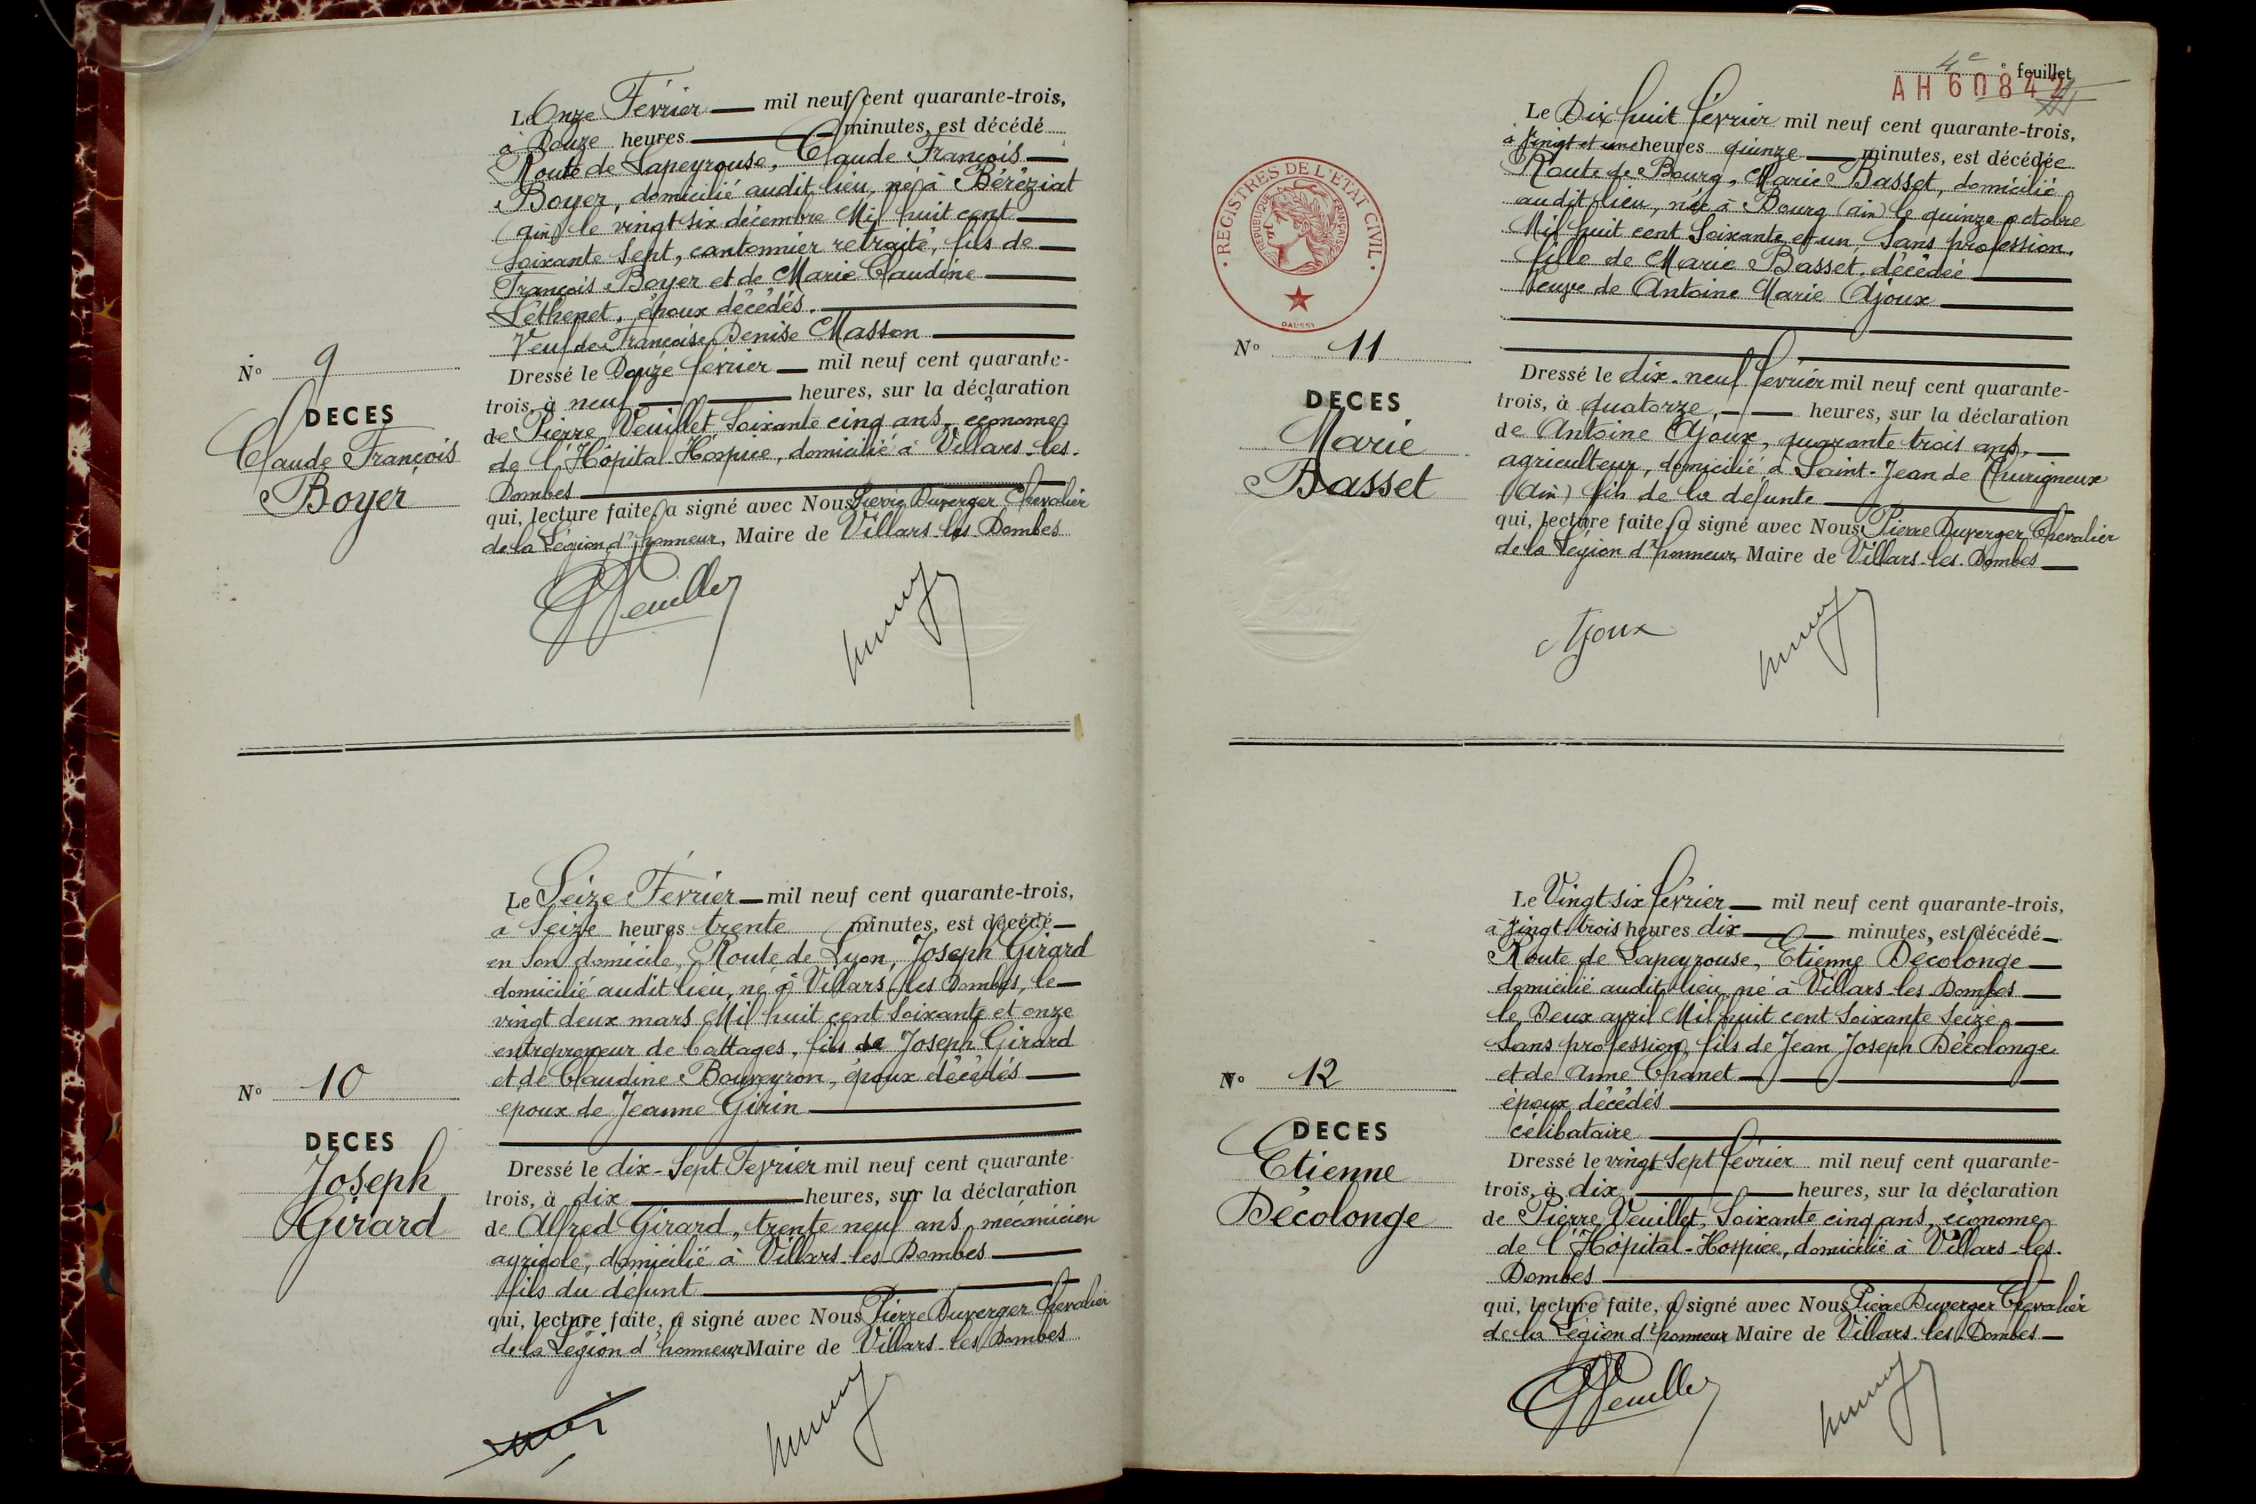 Le Onze Février — mil neuf cent quarante-trois,
à Douze heures — minutes, est décédé
Route de Lapeyrouse, Claude François —
Boyer, domicilié audit lieu, né à Béréziat
(ain) le vingt six décembre Mil huit cent —
soixante sept, cantonnier retraité, fils de —
François Boyer et de Marie Claudine —
époux décédés. —
Veuf de Françoise Denise Masson —
Nº 9
DECES
Claude François
Boyer
Dressé le Douze février — mil neuf cent quarante-
trois, à neuf — heures, sur la déclaration
de Pierre Veuillet Soixante cinq ans, économe
de l'Hôpital-Hospice, domicilié à Villars-les-
Dombes —
qui, lecture faite, a signé avec Nous Pierre Duverger, Chevalier
de la Légion d'honneur, Maire de Villars-les Dombes
Veuillet
Le Seize Février — mil neuf cent quarante-trois,
à Seize heures trente minutes, est décédé —
en son domicile, Route de Lyon, Joseph Girard
domicilié audit lieu, né à Villars-les Dombes, le —
vingt deux mars Mil huit cent soixante et onze
entrepreneur de battages, fils de Joseph Girard
et de Claudine Bouveyron, époux décédés —
époux de Jeanne Girin —
Nº 10
DECES
Joseph
Girard
Dressé le dix-sept Février mil neuf cent quarante-
trois, à dix — heures, sur la déclaration
de Alfred Girard, trente neuf ans, mécanicien
agricole, domicilié à Villars-les Dombes —
fils du défunt —
qui, lecture faite, a signé avec Nous Pierre Duverger Chevalier
de la Légion d'honneur Maire de Villars-les Dombes
4e feuillet
AH 60842
REGISTRES DE L'ETAT CIVIL
REPUBLIQUE FRANÇAISE
Le Dix huit février mil neuf cent quarante-trois,
à vingt et une heures quinze — minutes, est décédée
Route de Bourg, Marie Basset, domicilié
audit lieu, née à Bourg (ain) le quinze octobre
Mil huit cent Soixante et un, Sans profession.
fille de Marie Basset, décédée —
Veuve de Antoine Marie Ajoux —
Nº 11
DECES
Marie
Basset
Dressé le dix-neuf février mil neuf cent quarante-
trois, à quatorze, — heures, sur la déclaration
de Antoine Ajoux, quarante trois ans, —
agriculteur, domicilié à Saint-Jean de Thurigneux
(Ain) fils de la défunte —
qui, lecture faite, a signé avec Nous Pierre Duverger, Chevalier
de la Légion d'honneur, Maire de Villars-les-Dombes —
Ajoux
Le Vingt six février — mil neuf cent quarante-trois,
à vingt trois heures dix — minutes, est décédé —
Route de Lapeyrouse, Etienne Décolonge —
domicilié audit lieu, né à Villars-les Dombes —
le Deux avril Mil huit cent Soixante Seize, —
Sans profession, fils de Jean Joseph Décolonge
et de Anne Chanet —
époux décédés —
célibataire —
Nº 12
DECES
Etienne
Décolonge
Dressé le vingt-sept février mil neuf cent quarante-
trois, à dix — heures, sur la déclaration
de Pierre Veuillet, Soixante cinq ans, économe
de l'Hôpital-Hospice, domicilié à Villars-les-
Dombes —
qui, lecture faite, a signé avec Nous Pierre Duverger Chevalier
de la Légion d'honneur Maire de Villars-les-Dombes —
Veuillet